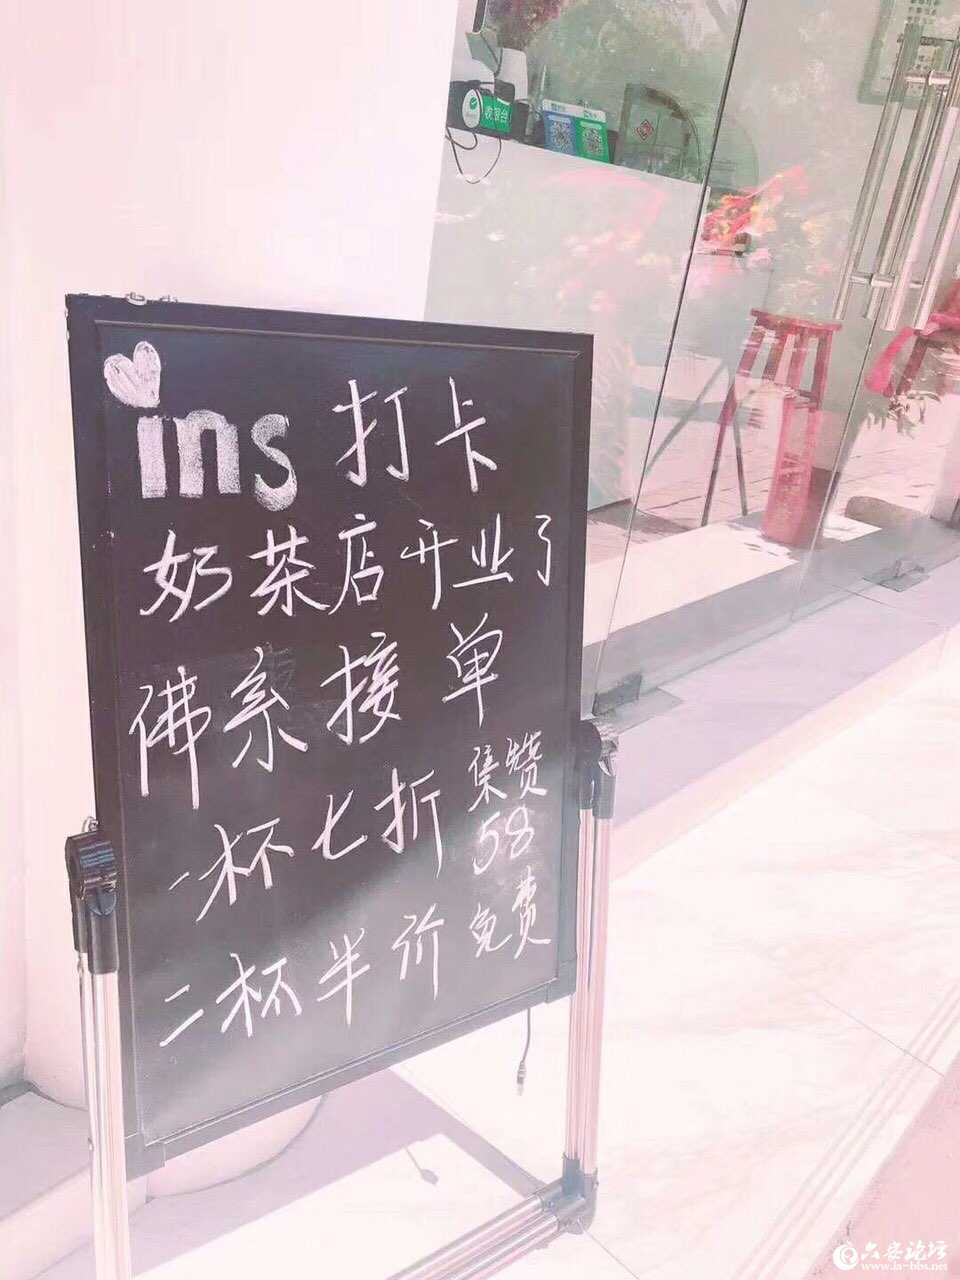 收银台
ins 打卡
奶茶店开业了
佛系接单
一杯七折
二杯半价
集赞
58
免费
六安论坛
www.la-bbs.net